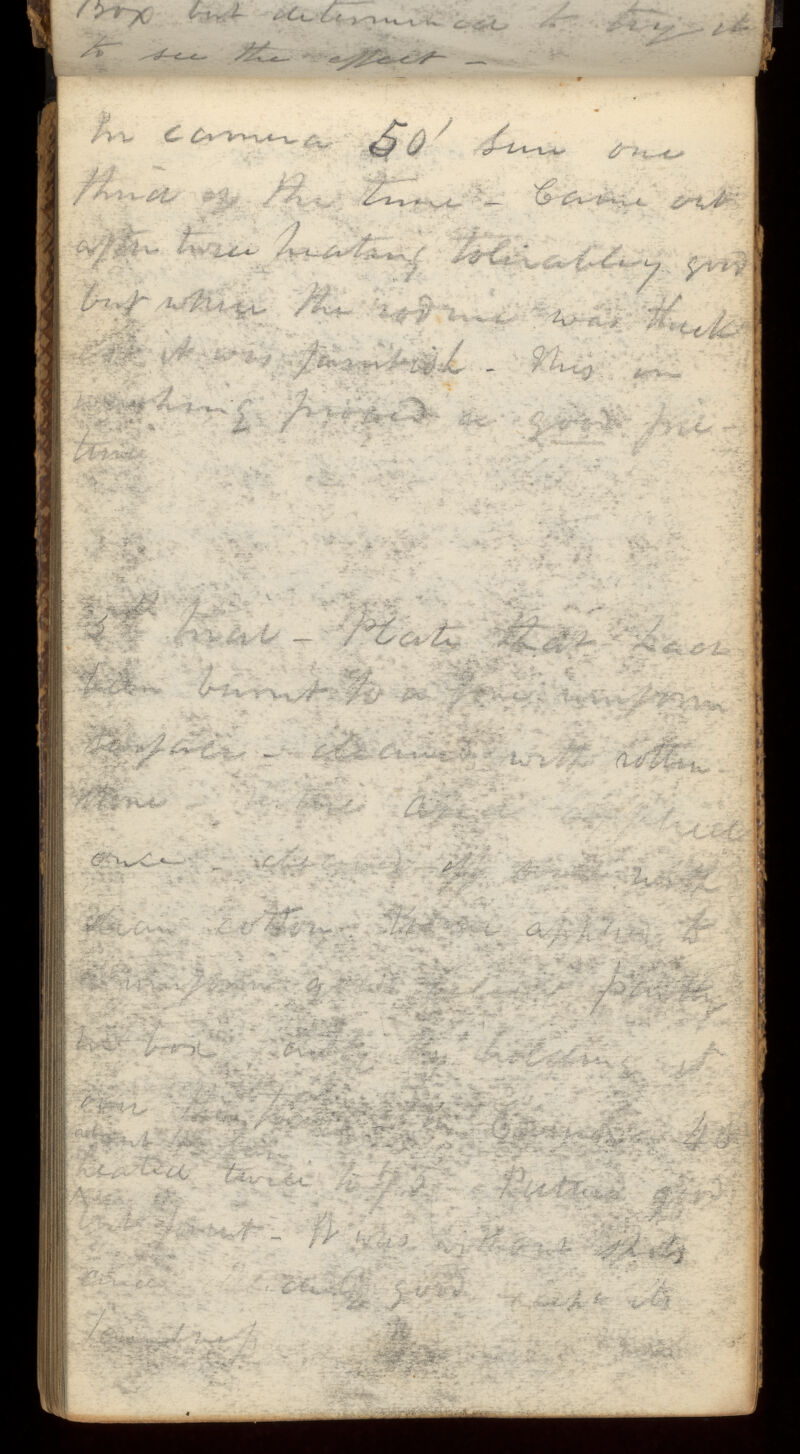 Box but determined to try it
to see the effect -
In camera 50' sun one
third of the time - Came out
after twice heating tolerabley good
but where the iodine was thick
it was faintish - This on
washing proved a good pic-
ture
5th trial - Plate that had
been burnt to a fine uniform
surface - cleaned with rotten
stone - acid applied
once - cleaned off with
clean cotton applied to
a uniform partly
in box and by holding it
over the Camera 48
about
heated twice to Picture good
but faint - It was without spots
and good except its
faintness